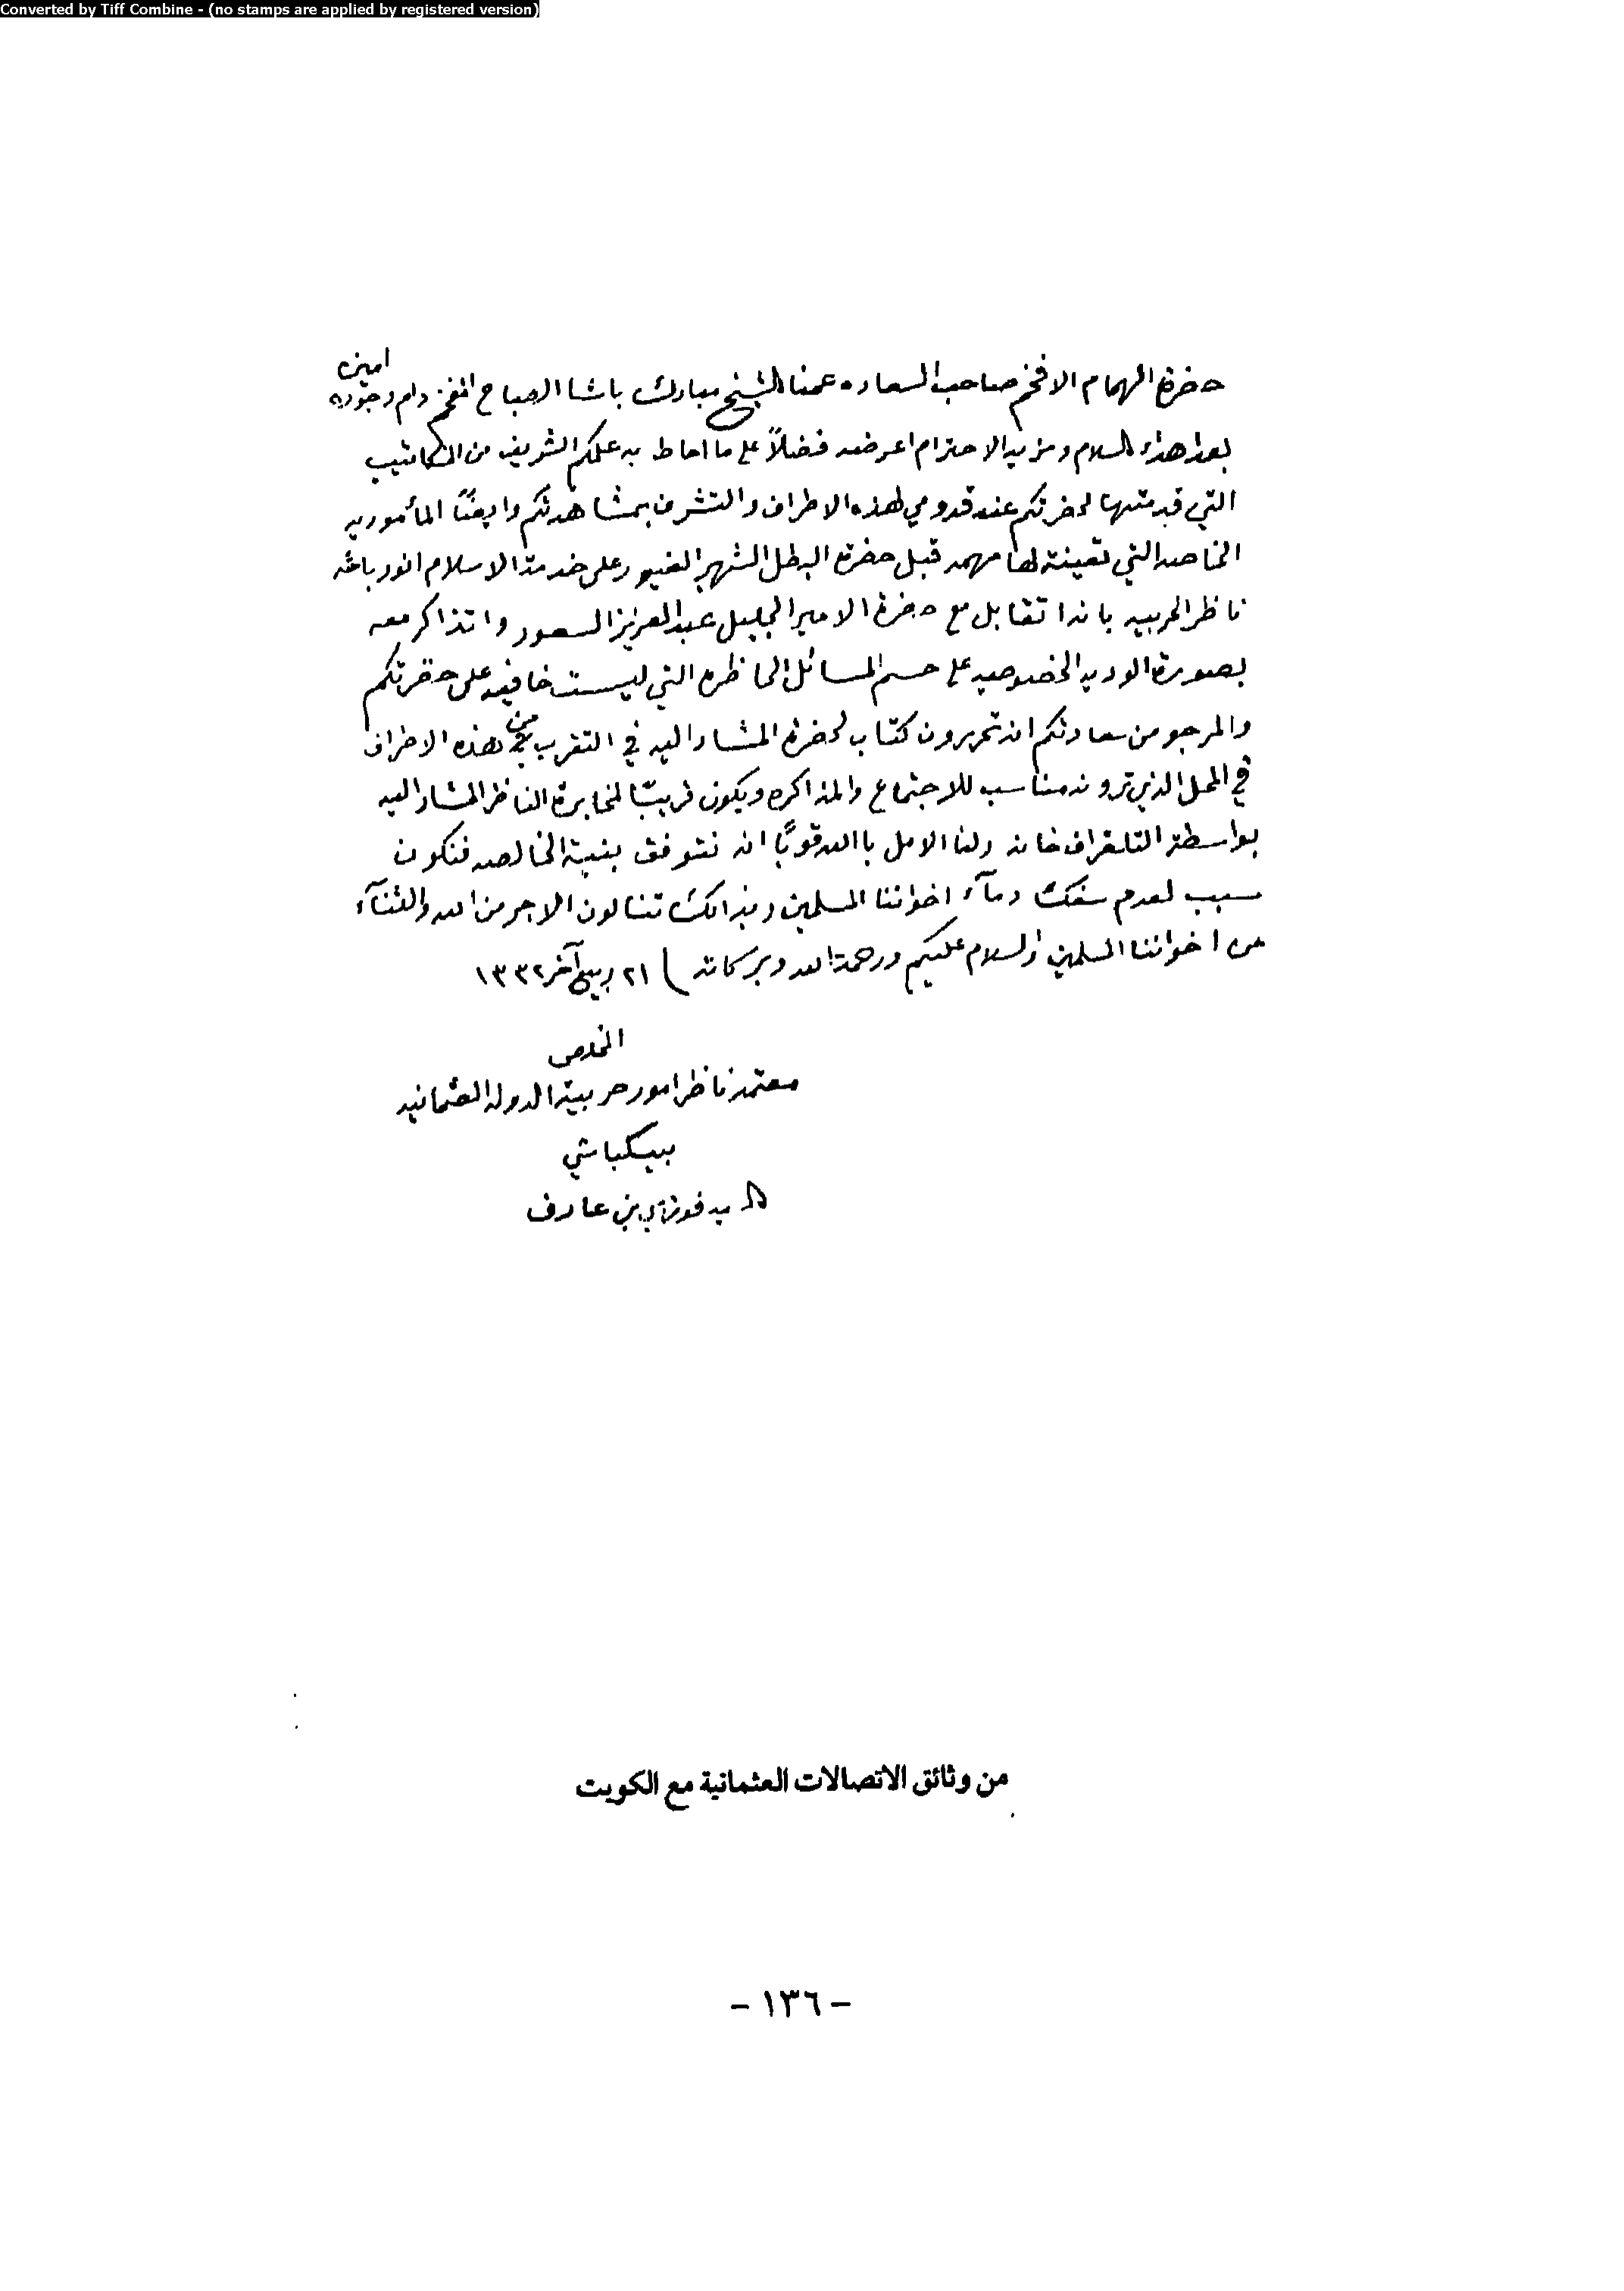 Converted by Tiff Combine - (no stamps are applied by registered version)
امين
حضرة الهمام الافخم صاحب السعاده عمنا الشيخ مبارك باشا الصباح المفخم دام وجوده
بعد هذاء السلام ومزيد الاحترام اعرضه فضلاً على ما احاط به علمكم الشريف من المكاتيب
التي قدمتها لحضرتكم عند قدومي لهذه الاطراف والتشرف بمشاهدتكم وايضًا المأموريه
الخاصه التي تعينة لها مهمه قبل حضرة البطل الشهير الغيور على خدمة الاسلام انور باشه
ناظر الحربيه بان اتقابل مع حضرة الامير الجليل عبدالعزيز السعود واتذاكر معه
بصورة الوديه الخصوصيه على حسم المسائل الحاظره التي ليست خافيه على حضرتكم
والمرجو من سعادتكم ان تحررون كتاب لحضرة المشار اليه في التقرب من هذه الاطراف
في المحل الذي ترونه مناسب للاجتماع والمذاكره ويكون قريبًا لمخابرة الناظر المشار اليه
بواسطة التلغرافخانه ولنا الامل باالله قويًا ان نتوفق بنية الخالصه فنكون
سبب لعدم سفك دمآء اخواننا المسلمين وبذالك تنالون الاجر من الله والثنآء
من اخواننا المسلمين والسلام عليكم ورحمة الله وبركاته ) ٢١ ربيع آخر ١٣٣٢
المخلص
معتمد ناظر امور حربية الدوله العثمانيه
بيكباشي
السيد فوزي بن عارف
من وثائق الاتصالات العثمانية مع الكويت
- ١٣٦ -